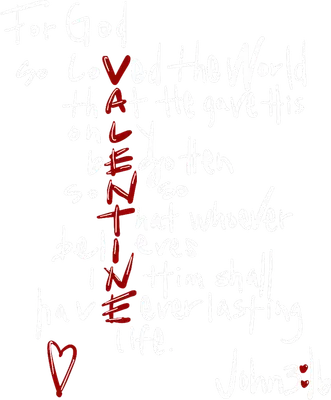 For God
so loVed the World
thAt He gave His
onLy
bEgotten
SoN so
That whoever
belIeves
iN Him shall
havE everlasting
life.
John 3:16